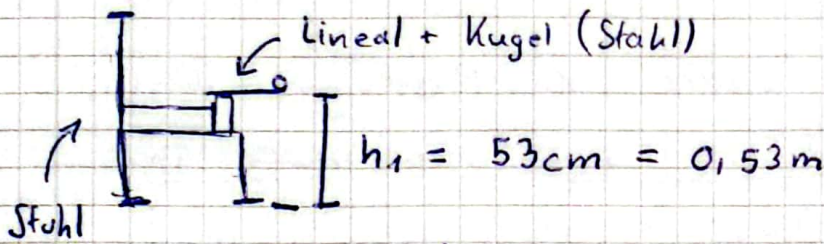 Lineal + Kugel (Stahl)
h₁ = 53cm = 0,53m
Stuhl